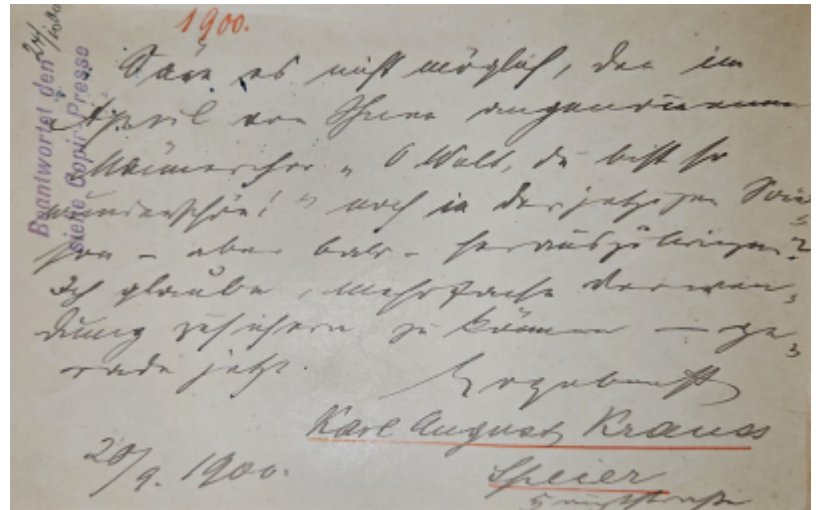 1900.
Beantwortet den 24/
siehe Copir-Presse
Wäre es nicht möglich, den im
April von Ihnen angenommenen
Männerchor „O Welt, du bist so
wunderschön!" noch in der jetzigen Sai-
son – aber bald – herauszubringen?
Ich glaube, mehrfache Verwen-
dung zusichern zu können — ge-
rade jetzt.
Ergebenst
Karl August Krauss
Speier
Hauptstraße
20/9. 1900.